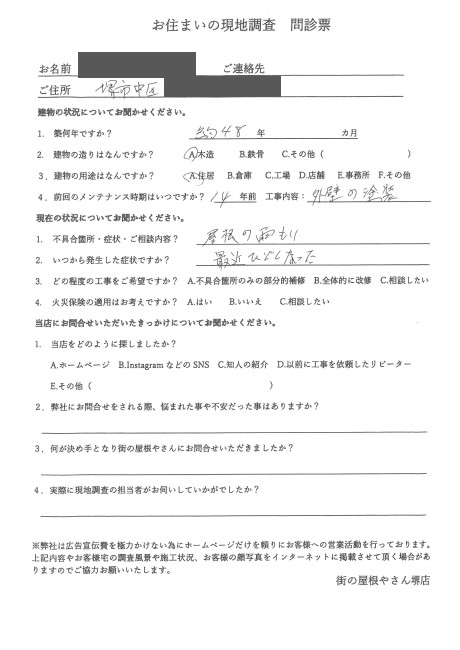 お住まいの現地調査　問診票
お名前　ご連絡先
ご住所　堺市中区
建物の状況についてお聞かせください。
1.　築何年ですか？　約48 年　カ月
2.　建物の造りはなんですか？　A.木造　B.鉄骨　C.その他（　）
3.　建物の用途はなんですか？　A.住居　B.倉庫　C.工場　D.店舗　E.事務所　F.その他
4．前回のメンテナンス時期はいつですか？　14 年前　工事内容：外壁の塗装
現在の状況についてお聞かせください。
1.　不具合箇所・症状・ご相談内容？　屋根の雨もり
2.　いつから発生した症状ですか？　最近ひどくなった
3.　どの程度の工事をご希望ですか？　A.不具合箇所のみの部分的補修　B.全体的に改修　C.相談したい
4.　火災保険の適用はお考えですか？　A.はい　B.いいえ　C.相談したい
当店にお問合せいただいたきっかけについてお聞かせください。
1.　当店をどのように探しましたか？
A.ホームページ　B.Instagram などの SNS　C.知人の紹介　D.以前に工事を依頼したリピーター
E.その他（　）
2．弊社にお問合せをされる際、悩まれた事や不安だった事はありますか？
3．何が決め手となり街の屋根やさんにお問合せいただきましたか？
4．実際に現地調査の担当者がお伺いしていかがでしたか？
※弊社は広告宣伝費を極力かけない為にホームページだけを頼りにお客様への営業活動を行っております。
上記内容やお客様宅の調査風景や施工状況、お客様の顔写真をインターネットに掲載させて頂く場合があ
りますのでご協力お願いいたします。
街の屋根やさん堺店